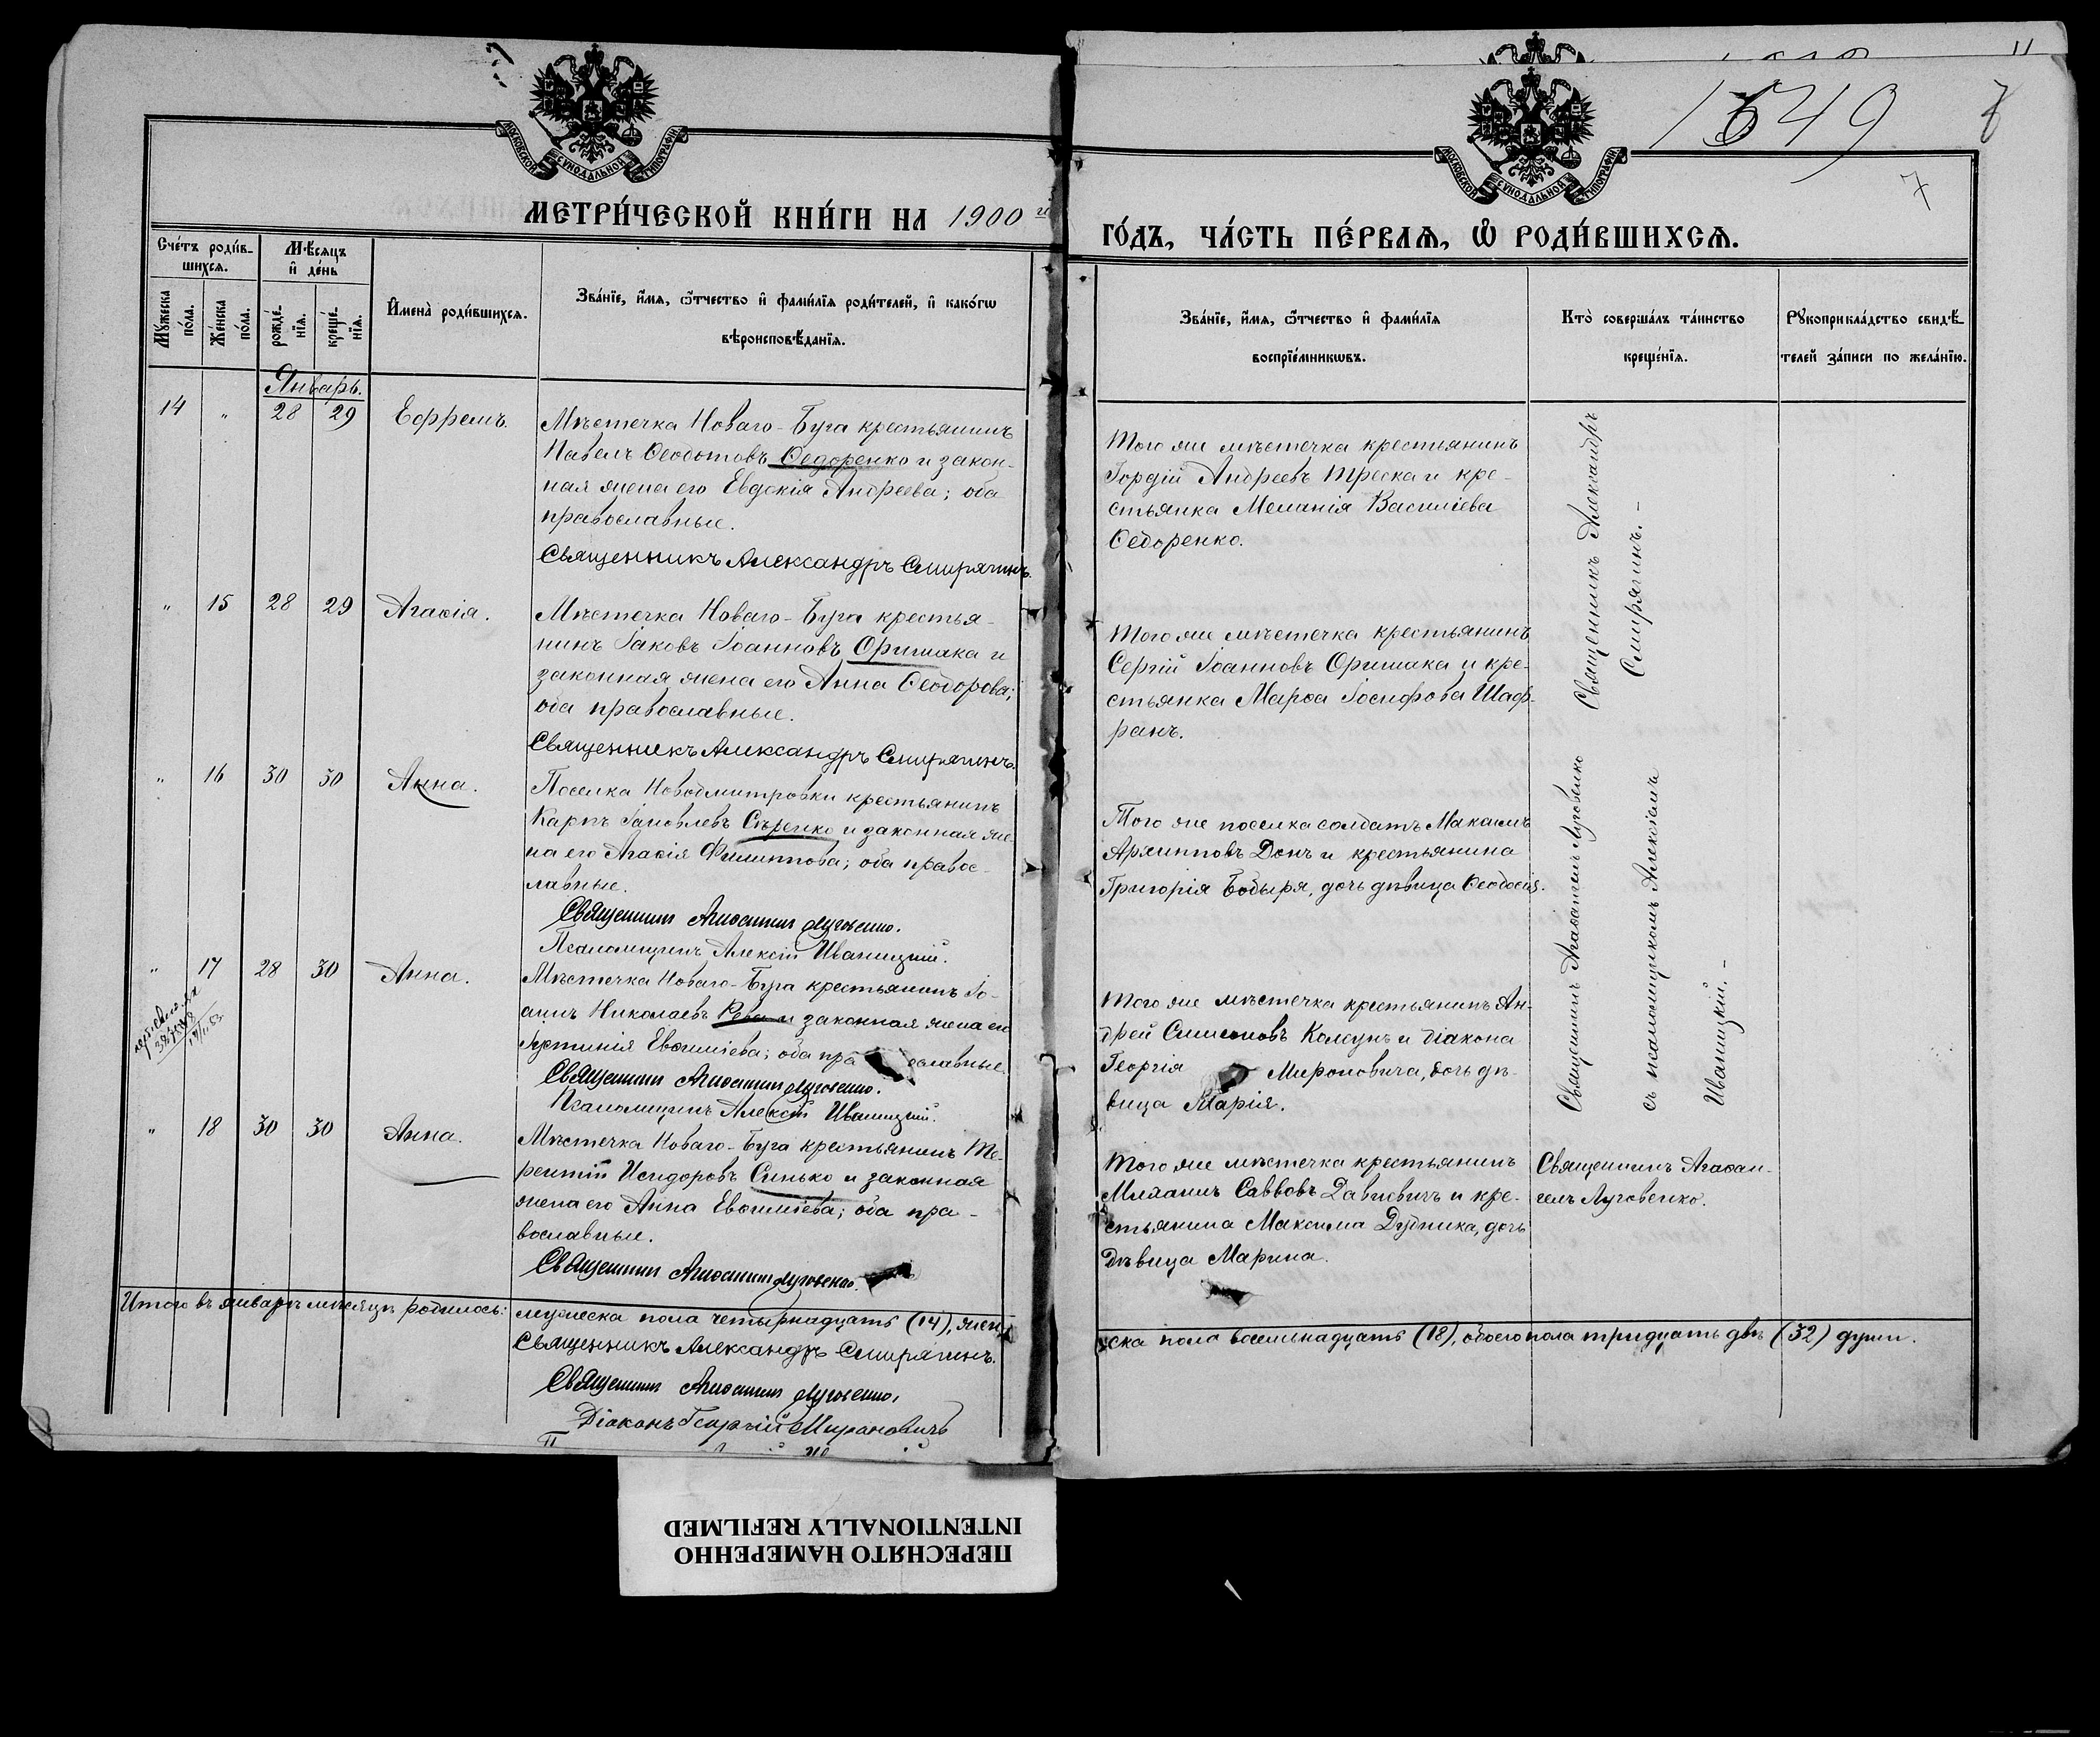 1649
7
МОСКОВСКОЙ СѴНОДАЛЬНОЙ ТИПОГРАФІИ
МОСКОВСКОЙ СѴНОДАЛЬНОЙ ТИПОГРАФІИ
МЕТРИ́ЧЕСКОЙ КНИ́ГИ НА 1900 й
ГО́ДЪ, ЧА́СТЬ ПЕ́РВАЯ, Ѽ РОДИ́ВШИХСЯ.
Сче́тъ роди́в-
шихся.
Мѣ́сяцъ
и҆ де́нь
Мꙋ́жеска по́ла.
Же́нска по́ла.
рожде́-
нїя.
креще́-
нїя.
И҆мена̀ роди́вшихся.
Зва́нїе, и҆́мя, ѻ҆́тчество и҆ фами́лїя роди́телей, и҆ како́гѡ
вѣроисповѣ́данїя.
Зва́нїе, и҆́мя, ѻ҆́тчество и҆ фами́лїя
воспрїе́мникѡвъ.
Кто̀ соверша́лъ та́инство
креще́нїя.
Рꙋкоприкла́дство свидѣ́-
телей за́писи по жела́нїю.
Январь.
14 " 28 29 Ефремъ.
Мѣстечка Новаго-Буга крестьянинъ
Павелъ Ѳеодотовъ Ѳедоренко и закон-
ная жена его Евдокія Андреева; оба
православные.
Священникъ Александръ Смирягинъ.
Того же мѣстечка крестьянинъ
Гордій Андреевъ Треска и кре-
стьянка Меланія Василіева
Ѳедоренко.
Священникъ Александръ
Смирягинъ.-
" 15 28 29 Агаѳія.
Мѣстечка Новаго-Буга крестья-
нинъ Іаковъ Іоанновъ Оришака и
законная жена его Анна Ѳеодорова;
оба православные.
Священникъ Александръ Смирягинъ.
Того же мѣстечка крестьянинъ
Сергій Іоанновъ Оришака и кре-
стьянка Марѳа Іосифова Шаф-
ранъ.
" 16 30 30 Анна.
Поселка Новодмитровки крестьянинъ
Карпъ Іаковлевъ Сѣренко и законная же-
на его Агаѳія Филиппова; оба правос-
лавные.
Священникъ Агаѳангелъ Луговенко.
Псаломщикъ Алексій Иваницкій.
Того же поселка солдатъ Максимъ
Архипповъ Донъ и крестьянина
Григорія Бобыря, дочь дѣвица Ѳеодосія.
Священникъ Агаѳангелъ Луговенко
съ псаломщикомъ Алексіемъ
Иваницкій.-
" 17 28 30 Анна.
Мѣстечка Новаго-Буга крестьянинъ Іо-
аннъ Николаевъ Рева и законная жена его
Іустинія Евѳиміева; оба пра ославные.
Священникъ Агаѳангелъ Луговенко.
Псаломщикъ Алексій Иваницкій.
Того же мѣстечка крестьянинъ Ан-
дрей Симеоновъ Колсунъ и діакона
Георгія Мироновича, дочь дѣ-
вица Марія.
" 18 30 30 Анна.
Мѣстечка Новаго-Буга крестьянинъ Те-
рентій Исидоровъ Синько и законная
жена его Анна Евѳиміева; оба пра-
вославные.
Священникъ Агаѳангелъ Луговенко.
Того же мѣстечка крестьянинъ
Михаилъ Саввовъ Давиовичъ и кре-
стьянина Максима Дудника, дочь
дѣвица Марина.
Священникъ Агаѳан-
гелъ Луговенко.
Итого въ январѣ мѣсяцѣ родилось: мужеска пола четырнадцать (14), жен-
ска пола восемнадцать (18), обоего пола тридцать двѣ (32) души.
Священникъ Александръ Смирягинъ.
Священникъ Агаѳангелъ Луговенко.
Діаконъ Георгій Мироновичъ
ПЕРЕСНЯТО НАМЕРЕННО
INTENTIONALLY REFILMED